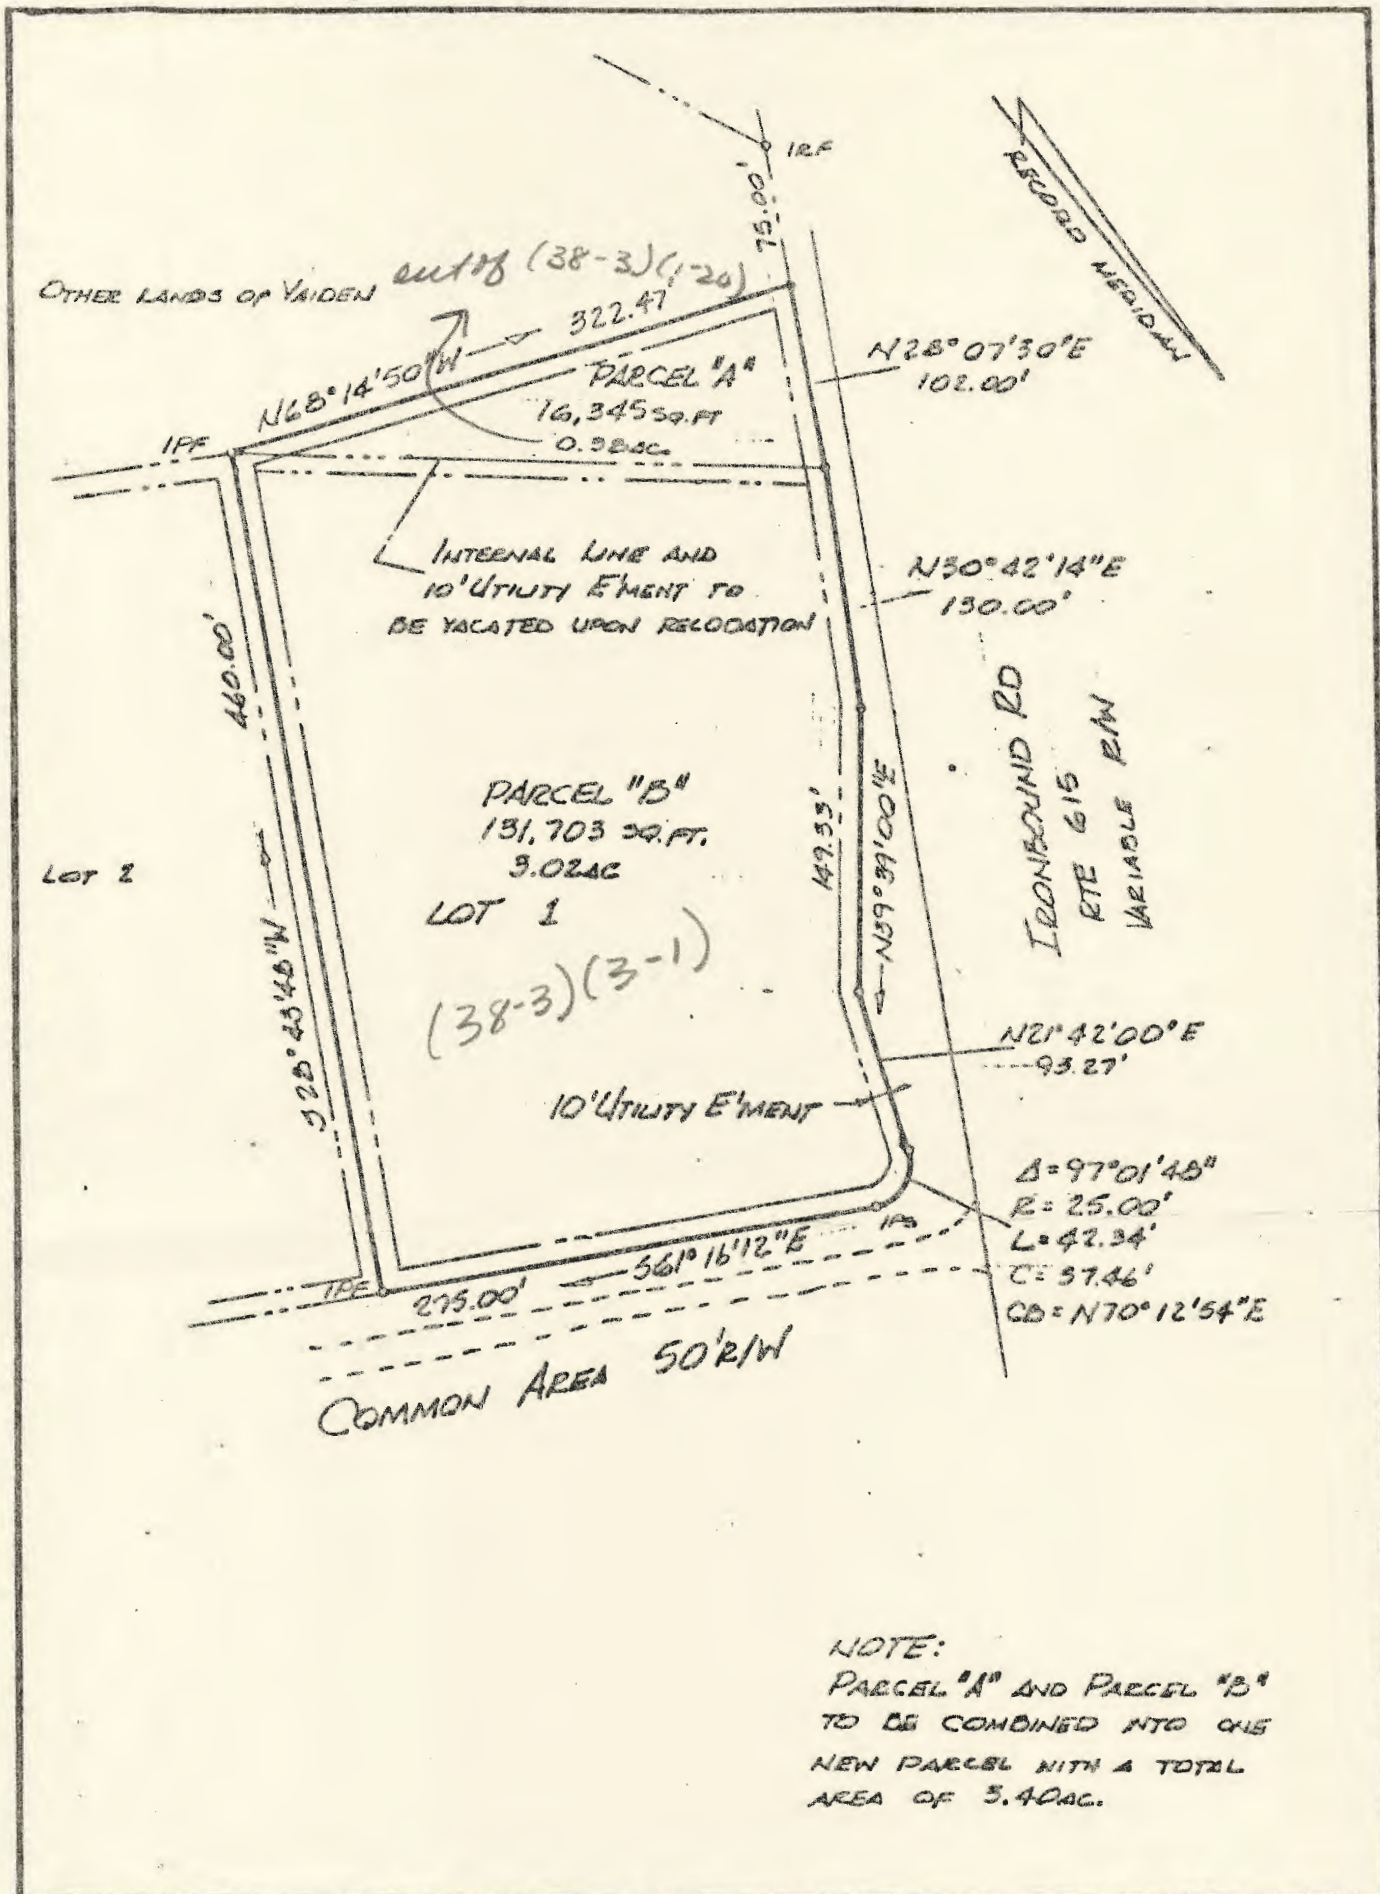 IRF
75.00'
RECORD MERIDIAN
OTHER LANDS OF VAIDEN
out of (38-3)(1-20)
N68°14'50"W
322.47'
PARCEL "A"
16,345 SQ.FT
0.38AC.
N28°07'30"E
102.00'
IPF
INTERNAL LINE AND
10' UTILITY E'MENT TO
BE VACATED UPON RECORDATION
N30°42'14"E
130.00'
460.00'
S28°43'48"W
LOT 2
PARCEL "B"
131,703 SQ.FT.
3.02AC
LOT 1
(38-3)(3-1)
149.33'
N39°39'00"E
IRONBOUND RD
RTE 615
VARIABLE R/W
N21°42'00"E
93.27'
10' UTILITY E'MENT
Δ=97°01'48"
R=25.00'
L=42.34'
C=37.46'
CB=N70°12'54"E
IPS
S61°16'12"E
IPF
275.00'
COMMON AREA 50'R/W
NOTE:
PARCEL "A" AND PARCEL "B"
TO BE COMBINED INTO ONE
NEW PARCEL WITH A TOTAL
AREA OF 3.40AC.